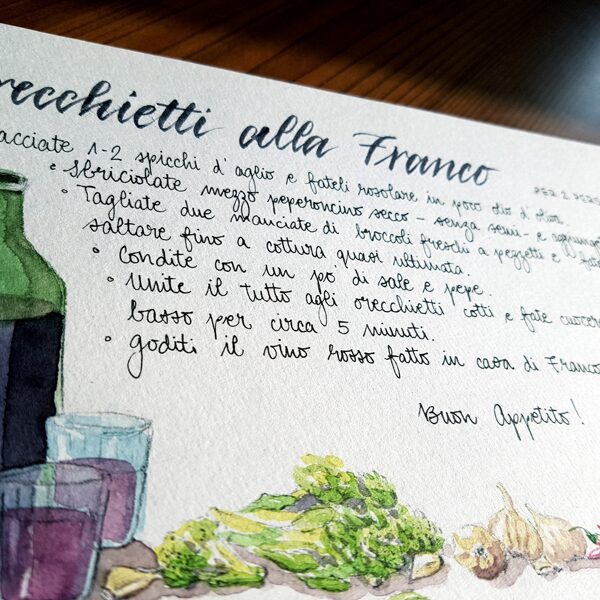 recchietti alla Franco
PER 2 PERS
acciate 1-2 spicchi d'aglio e fateli rosolare in poco olio d'oliva.
• Sbriciolate mezzo peperoncino secco - senza semi - e aggiunge
• Tagliate due manciate di broccoli freschi a pezzetti e
saltare fino a cottura quasi ultimata.
• Condite con un po di sale e pepe.
• Unite il tutto agli orecchietti cotti e fate cuocere
basso per circa 5 minuti.
• goditi il vino rosso fatto in casa di Franco
Buon Appetito!